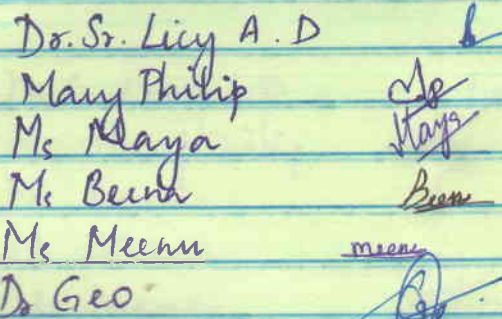 Dr. Sr. Licy A. D
Mary Philip
Ms Maya Maya
Ms Beena Been
Ms Meenu meenu
Dr Geo